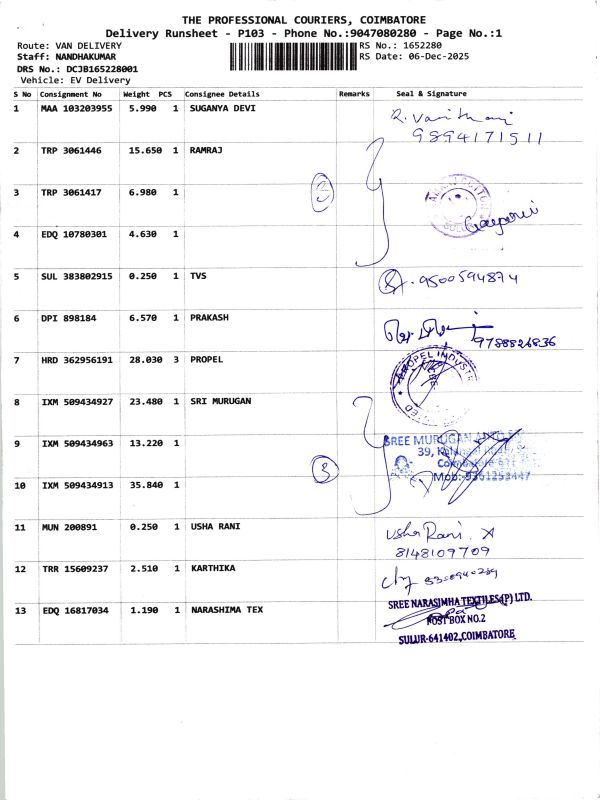 THE PROFESSIONAL COURIERS, COIMBATORE
Delivery Runsheet - P103 - Phone No.:9047080280 - Page No.:1
Route: VAN DELIVERY RS No.: 1652280
Staff: NANDHAKUMAR RS Date: 06-Dec-2025
DRS No.: DCJB165228001
Vehicle: EV Delivery
S No Consignment No Weight PCS Consignee Details Remarks Seal & Signature
1 MAA 103203955 5.990 1 SUGANYA DEVI
9894171511
2 TRP 3061446 15.650 1 RAMRAJ
3 TRP 3061417 6.980 1
COTTON
SULUR
4 EDQ 10780301 4.630 1
5 SUL 383802915 0.250 1 TVS 9500594874
6 DPI 898184 6.570 1 PRAKASH
9788826836
7 HRD 362956191 28.030 3 PROPEL
PROPEL INDUSTR
8 IXM 509434927 23.480 1 SRI MURUGAN
SREE MURUGAN
9 IXM 509434963 13.220 1 39,
3
10 IXM 509434913 35.840 1
11 MUN 200891 0.250 1 USHA RANI Usha Rani. A
8148109709
12 TRR 15609237 2.510 1 KARTHIKA
13 EDQ 16817034 1.190 1 NARASHIMA TEX
SREE NARASIMHA TEXTILES (P) LTD.
POST BOX NO.2
SULUR-641402, COIMBATORE